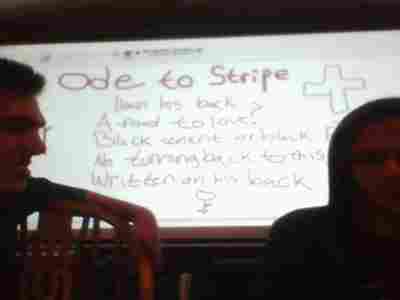 Ode to Stripe
Down his back
A road to love?
Black cement or black
No turning back to this
Written on his back